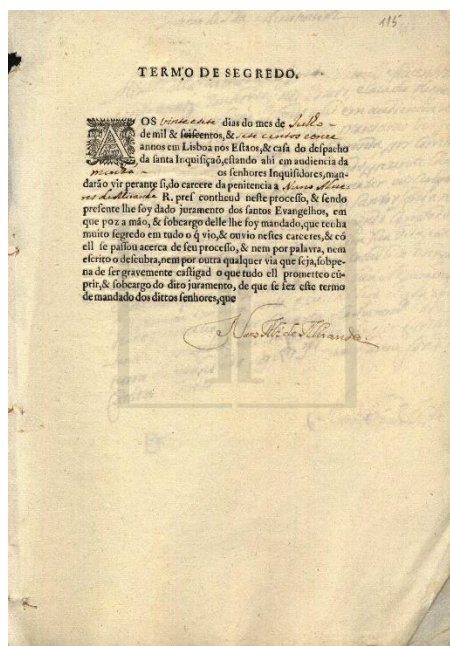 115
TERMO DE SEGREDO.
AOS vinte e sete dias do mes de Julho
de mil & seiscentos, & sete centos e onze
annos em Lisboa nos Estaos, & casa do despacho
da santa Inquisiçaõ, estando ahi em audiencia da
menhã os senhores Inquisidores, man-
darão vir perante si, do carcere da penitencia a Nuno Alve
res de Miranda R. pres contheud neste processo, & sendo
presente lhe foy dado juramento dos santos Evangelhos, em
que poz a mão, & sobcargo delle lhe foy mandado, que tenha
muito segredo em tudo o q̃ vio, & ouvio nestes carceres, & cõ
ell se passou acerca de seu processo, & nem por palavra, nem
escrito o descubra, nem por outra qualquer via que seja, sobpe-
na de ser gravemente castigad o que tudo ell prometteo cũ-
prir, & sobcargo do dito juramento, de que se fez este termo
de mandado dos dittos senhores, que
Nuno Alz de Miranda